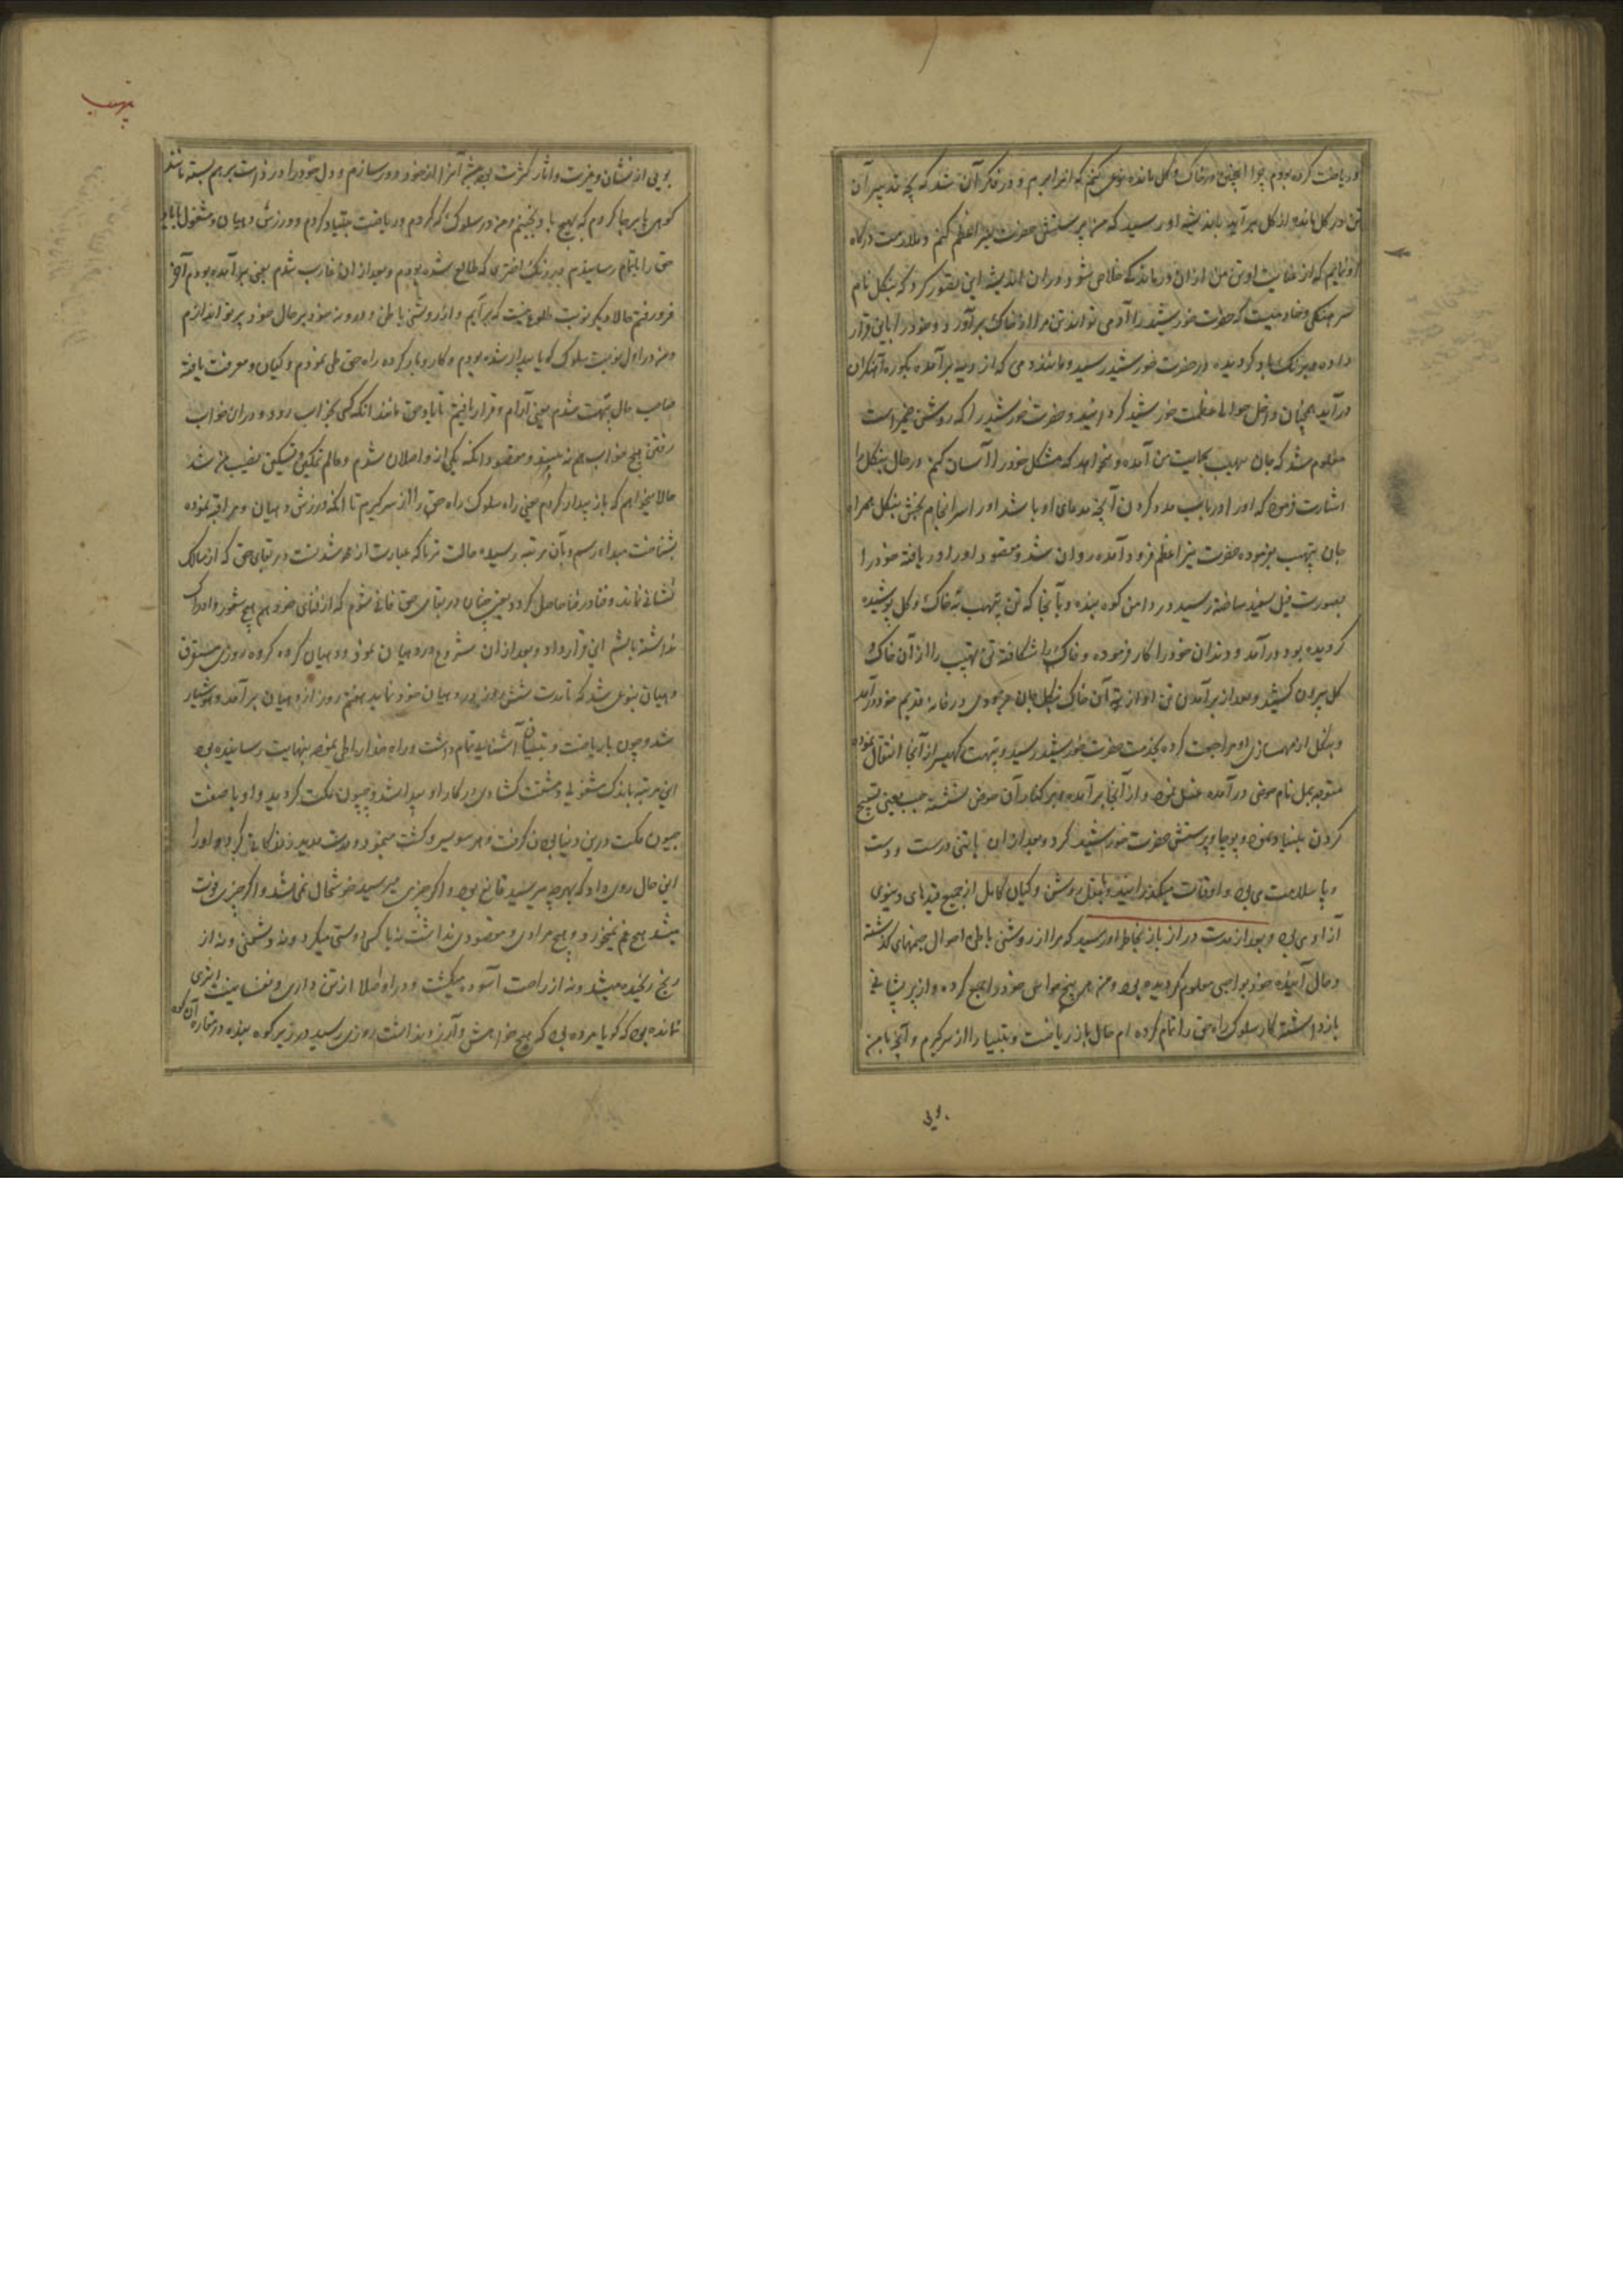 و ریاضت کرده بودم چرا اینچنین در خاک و گل مانده نوعی کنم که ازو برایم و در فکر آن شد که بچه تدبیر آن
تن در گل مانده از گل برآید باندیشه او رسید که من پرستش حضرت نیر اعظم کنم و ملازمت درگاه
او نمایم که از عنایت او تن من ازان درماندگی خلاص شود و دران اندیشه این تصور کرد که پنگل نام
سرهنگی و خادمیست که حضرت خورشید را آدمی تواند تن مرا از خاک برآورد و خود را باین قرار
داده برنگ باد گردیده در حضرت خورشید رسید و مانند دمی که از دمه برآمده بکوره آهنگران
درآید همچنان داخل حوالی عظمت خورشید گردانید و حضرت خورشید را که روشن ضمیر است
معلوم شد که جان بهیب بحمایت من آمده و میخواهد که مشکل خود را آسان کنم در حال پنگل را
اشارت فرمود که او را در باب مدد کردن آنچه مدعای او باشد او را سرانجام بخش پنگل همراه
جان پتهب بفرموده حضرت نیر اعظم فرود آمده روان شد و مقصود او را دریافته خود را
بصورت فیل سفید ساخته رسید در دامن کوه بنده و بآنجا که تن پتهب ته خاک و گل پوشیده
گردیده بود درآمد و دندان خود را کار فرموده و خاک را شکافته تن پتهب را از آن خاک
گل بیرون کشید و بعد از برآمدن تن او از ته آن خاک پنگل جان در خانه قدیم خود درآمد
و پنگل از همسازی او مراجعت کرده بخدمت حضرت خورشید رسید و پتهب کهیسر از آنجا انتقال نموده
متوجه بمل نام حوض درآمده غسل نموده و از آنجا برآمده بر کنار آن حوض نشسته جپ یعنی تسبیح
کردن بنیاد نموده و پوجا و پرستش حضرت خورشید کرد و بعد از ان با تنی درست و دست
و پا سلامت می بود و اوقات میگذرانید و بعقل روشن و گیان کامل از جمیع قیدهای دنیوی
آزاد می بود و بعد از مدت دراز باز بخاطر او رسید که مرا از روشنی باطن احوال جنمهای گذشته
و حال آینده خود بواجبی معلوم گردیده بود و من هر پنج حواس خود را جمع کرده و از پریشانی
بازداشته کار سلوک راه حق را تمام کرده ام حال باز ریاضت و تپسیا را از سر گیرم و آنچه با من
بوی
پتهب
بوی از نشان وحدت و آثار کثرت بود همه آنرا از خود دور سازم و دل خود را در ذات برهم بسته مانند
کوهی پابرجا کردم که بهیچ باد نجنبم و من در سلوک که کردم و ریاضت بنیاد کردم و ورزش دهیان و مشغولی
حق را باتمام رسانیدم برنگ اختری که طالع شده بودم و بعد از ان غارب شدم یعنی برآمده بودم آخر
فرو رفتم حالا دیگر نوبت طلوعیست که برآیم و از روشنی باطن و درونه خود بر حال خود پرتو اندازم
و من در اول نوبت سلوک گویا بیدار شده بودم و کاروبار کرده راه حق طی نمودم و گیان و معرفت یافته
صاحب حال تهت شدم یعنی آرام و قرار یافتم تا با وحق مانند آنکه کسی بخواب رود و دران خواب
رفتن هیچ خواب هم نه بیند و مقصود آنکه یکی از واصلان شدم و عالم تمکین و تسکین نصیب من شد
حالا میخواهم که باز بیدار گردم یعنی راه سلوک راه حق را از سر گیرم تا آنکه ورزش دهیان و مراقبه نموده
بشناخت مبداء رسم و بآن مرتبه رسیده حالت تریا که عبارت از نیست شدنست در بقای حق که از سالک
نشانی نماند و فنا در فنا حاصل گردد یعنی چنان در بقای حق فانی شوم که از فنای خود هم هیچ شعور و ادراک
نداشته باشم این قرار داد و بعد از ان شروع در دهیان نمود و دهیان کرده کرده روزی مستغرق
دهیان بنوعی شد که تا مدت شش روز در دهیان خود بماند هفتم روز از دهیان برآمد و هوشیار
شد و چون با ریاضت و تپسیا آشنایی تمام داشت و راه خدا را طی نموده بنهایت رسانیده بود
این مرتبه باندک مشغولی و مشقت گشادی در کار او پیدا شد و جیون مکت گردید و او با صفت
جیون مکت درین دنیا بودن گرفت و هر سو سیر و گشت مینمود و مدت مدید زندگانی کرد و او را
این حال روی داد که بهرچه میرسید قانع بود و اگر چیزی میرسید خوشحال نمی شد و اگر چیزی فوت
میشد هیچ غم نمیخورد و هیچ مرادی و مقصودی نداشت نه با کسی دوستی میکرد و نه دشمنی و نه از
رنج رنجیده میشد و نه از راحت آسوده میگشت و در او اصلا از تن داری و نفسانیت اثری
نمانده بود که گویا مرده بود که هیچ خواهش و آرزو نداشت روزی رسید در زیر کوه بنده در مغاره آن کوه